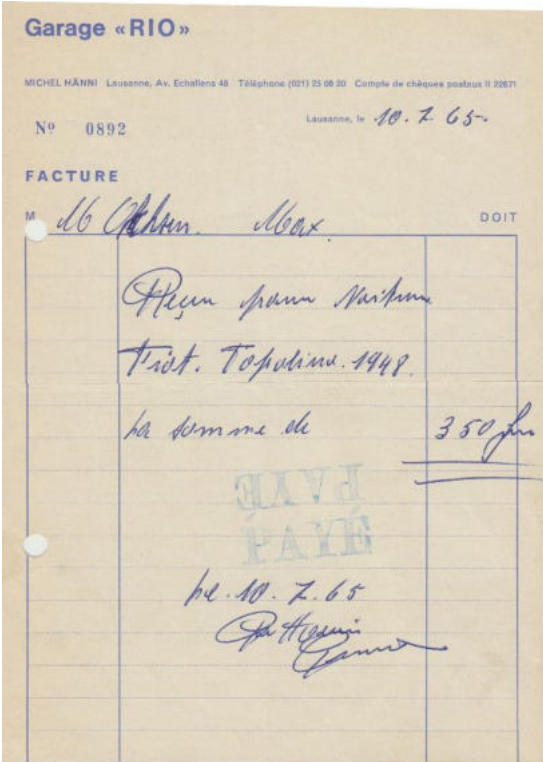 Garage «RIO»
MICHEL HÄNNI Lausanne, Av. Echallens 48 Téléphone (021) 25 08 20 Compte de chèques postaux II 22671
Nº 0892
Lausanne, le 10. 7. 65.
FACTURE
M M Max DOIT
Reçu pour
Fiat. Topolino. 1948.
La somme de 350 frs
PAYÉ
PAYÉ
Le. 10. 7. 65